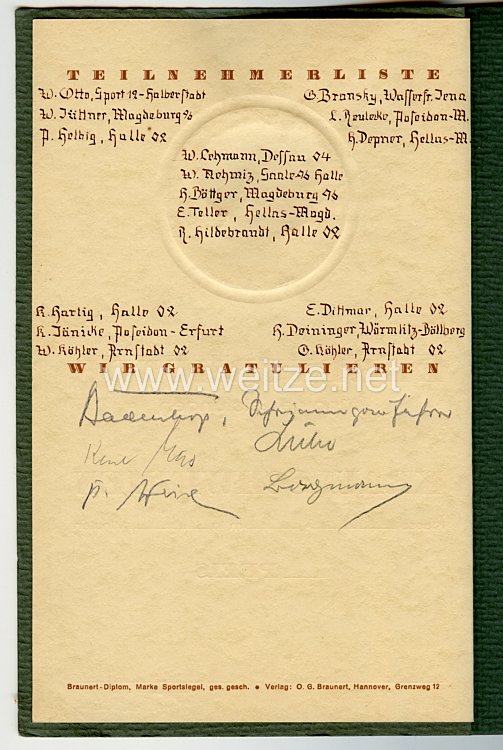 TEILNEHMERLISTE
W. Otto, Sport 12-Halberstadt G. Bransky, Wasserfr. Jena
W. Jüttner, Magdeburg 96 L. Reulecke, Poseidon-M.
P. Helbig, Halle 02 H. Depner, Hellas-M.
W. Lehmann, Dessau 04
W. Nehmiz, Saale-96 Halle
H. Böttger, Magdeburg 96
E. Teller, Hellas-Magd.
R. Hildebrandt, Halle 02
K. Hartig, Halle 02 E. Dittmar, Halle 02
K. Jänicke, Poseidon-Erfurt H. Deininger, Wörmlitz-Böllberg
W. Köhler, Arnstadt 02 G. Köhler, Arnstadt 02
WIR GRATULIEREN
www.weitze.net
Bergmann
Braunert-Diplom, Marke Sportsiegel, ges. gesch. • Verlag: O. G. Braunert, Hannover, Grenzweg 12